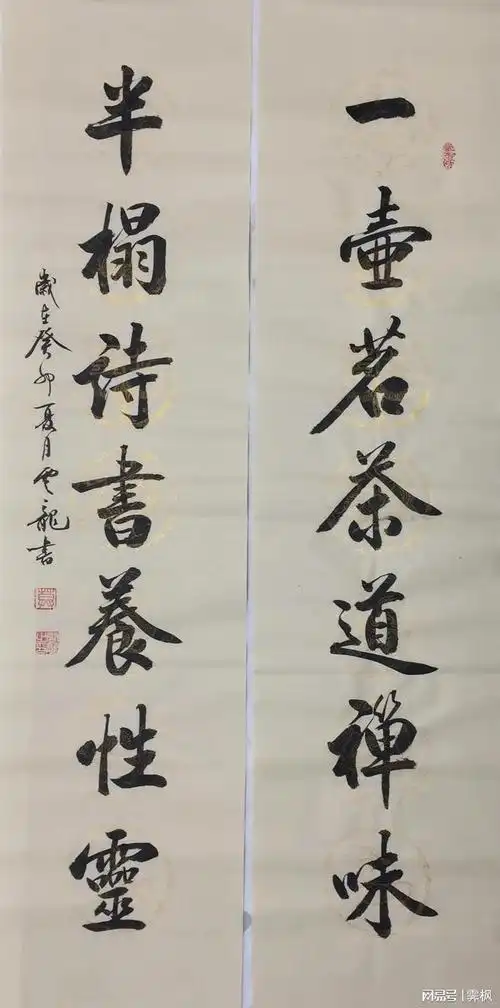 一壺茗茶道禪味
半榻詩書養性靈
歲在癸卯夏月雲龍書
网易号 | 霁枫